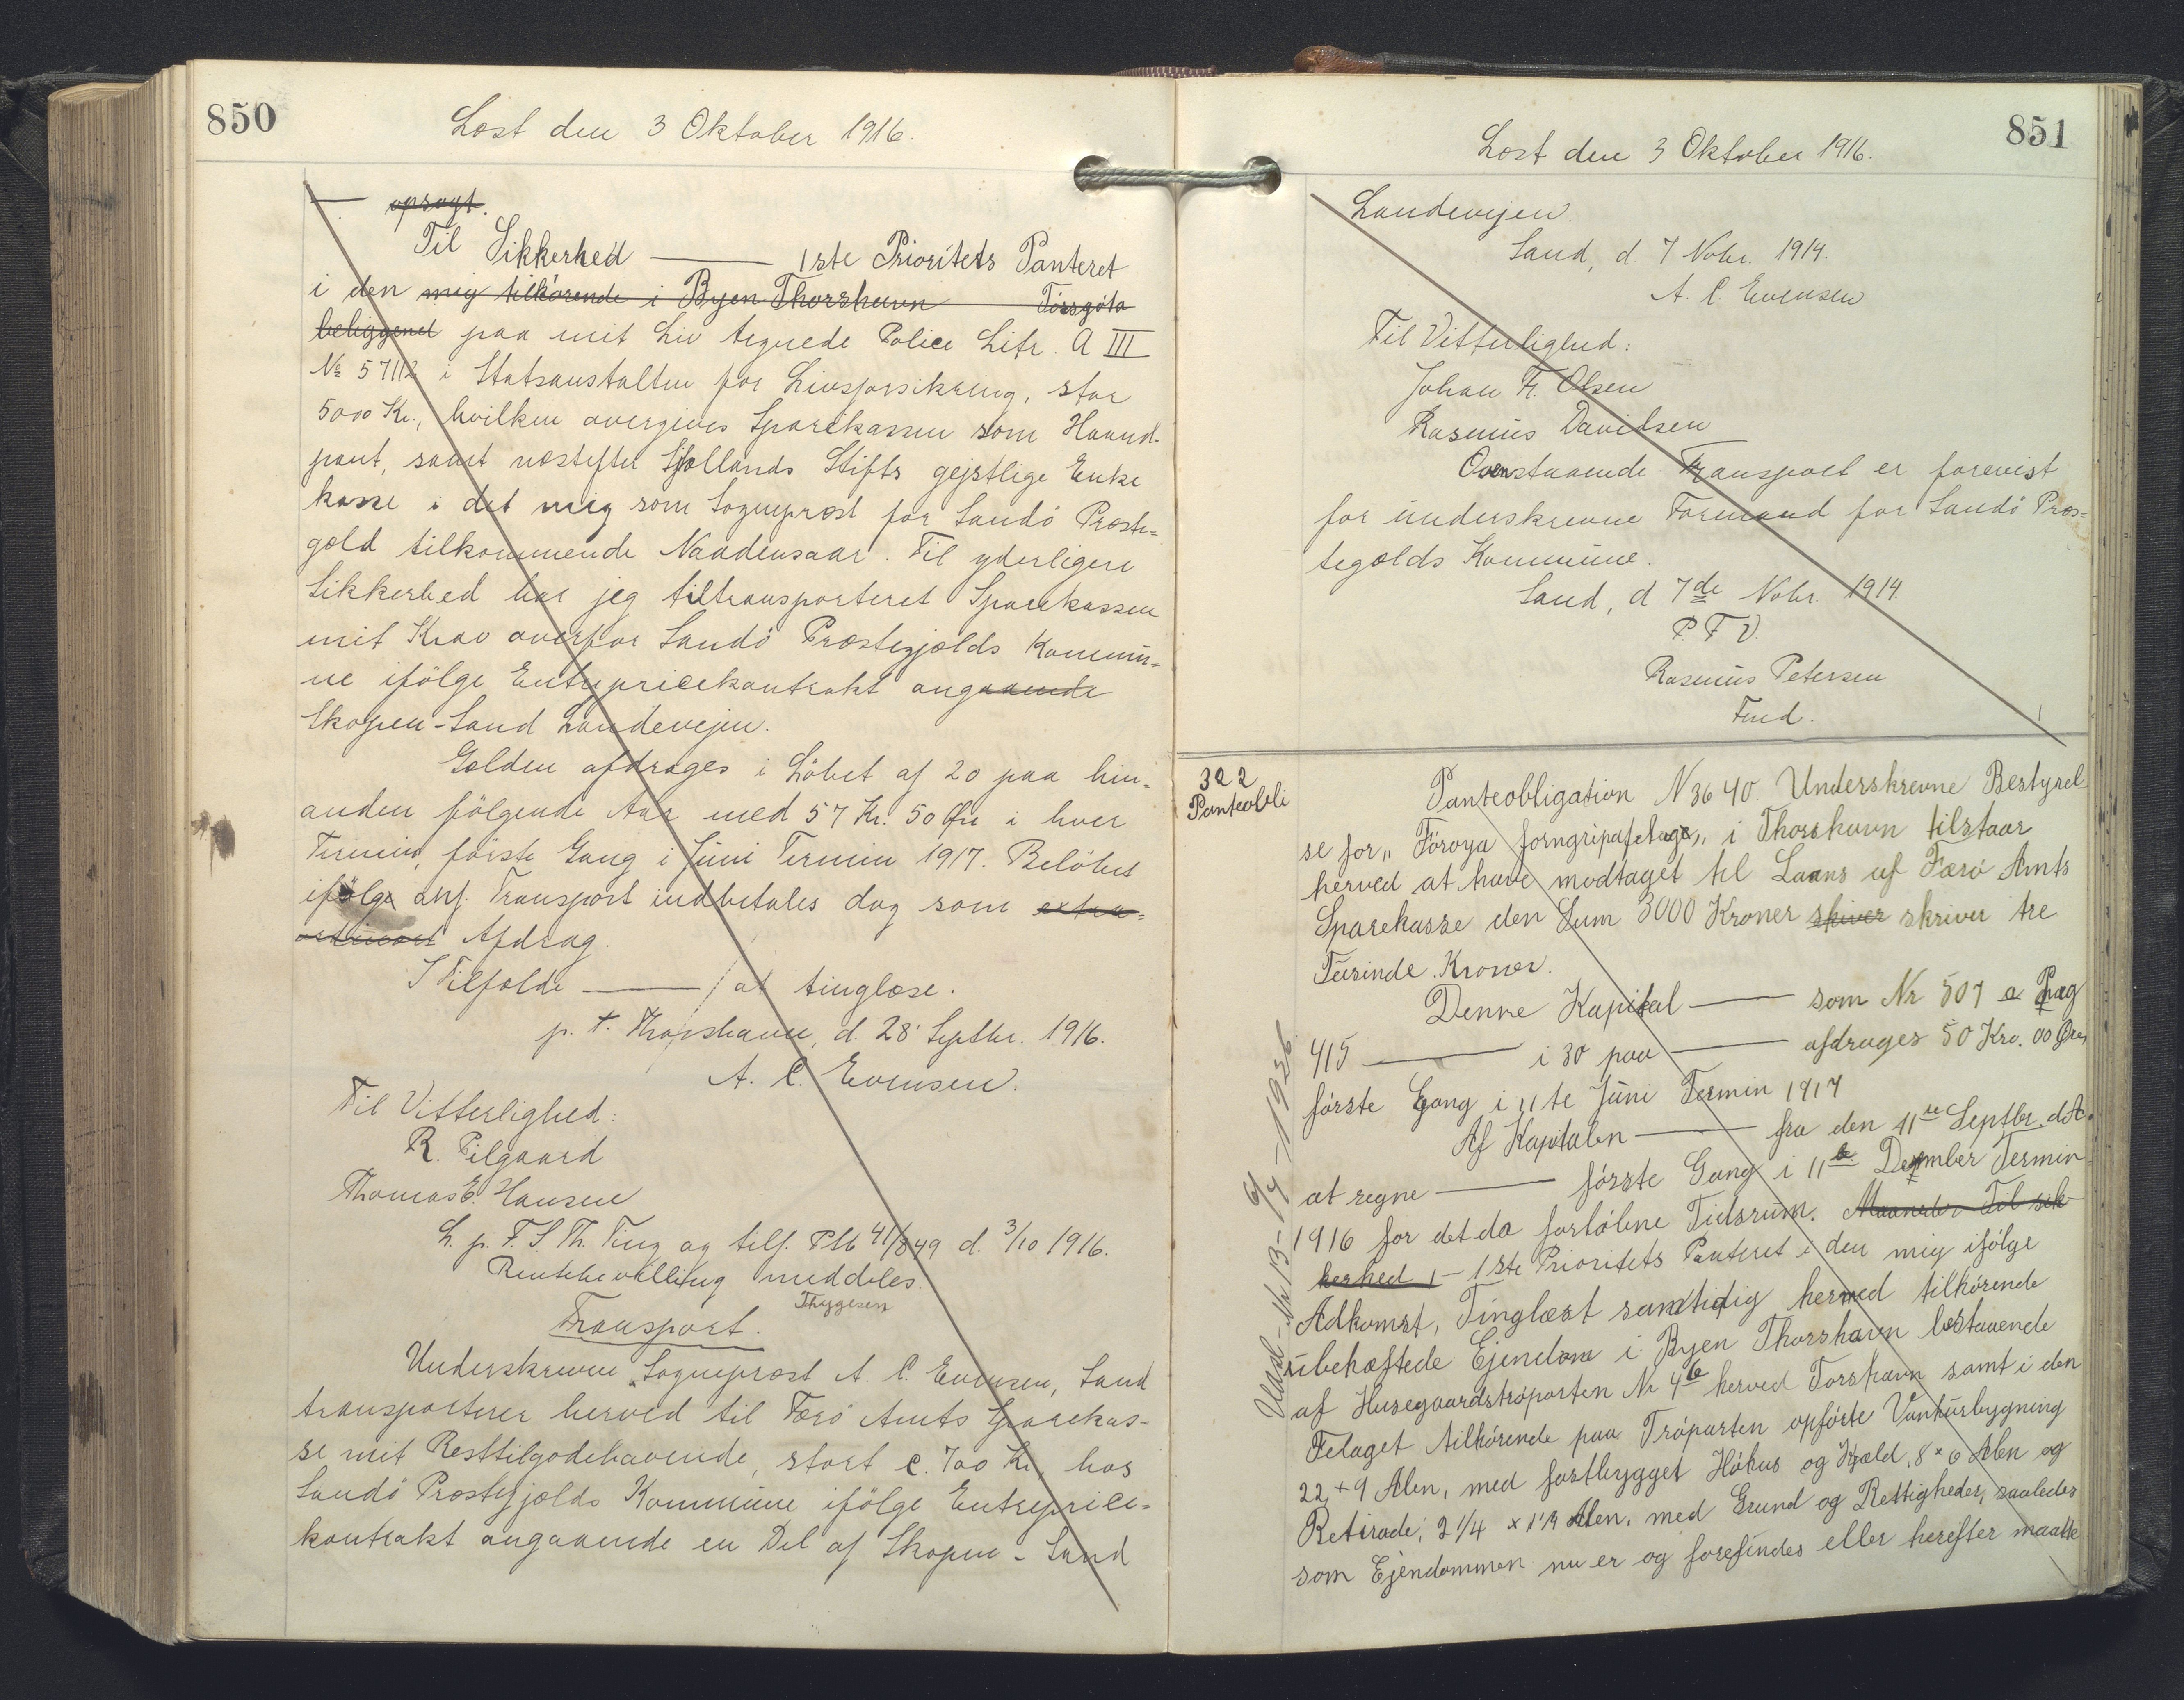 850
Læst den 3 Oktober 1916.
— opragt.
Til Sikkerhed — 1ste Prioritets Panteret
i den mig tilhörende i Byen Thorshavn Torsgöta
beliggend paa mit Liv tegnede Police Litr. A III
№ 57112 i Statsanstalten for Livsforsikring, stor
5000 Kr., hvilken overgives Sparekassen som Haand-
pant, samt næstefter Sjællands Stifts gejstlige Enke
kasse i det mig som Sognepræst for Sandö Præste=
gæld tilkommende Naadensaar. Til yderligere
Sikkerhed har jeg tiltransporteret Sparekassen
mit Krav overfor Sandö Præstegjælds Kommu=
ne ifölge Entrepricekontrakt angaaende
Skopen-Sand Landevejen.
Gælden afdrages i Löbet af 20 paa hin-
anden fölgende Aar med 57 Kr. 50 Øre i hver
Termin, förste Gang i Juni Termin 1917. Belöbet
ifölge anf. Transport indbetales dog som extra=
ordinært Afdrag.
I Tilfælde — at tinglæse.
p. t. Thorshavn, d. 28' Septbr. 1916.
A. C. Evensen.
Til Vitterlighed:
R. Pilgaard
Thomas E. Hansen
L. p. F. S. Th. Ting og tilf. Ptb 41/849 d. 3/10 1916.
Rentebevilling meddeles.
Thygesen
Transport.
Underskrevne Sognepræst A. C. Evensen, Sand
transporterer herved til Færö Amts Sparekas-
se mit Resttilgodehavende, stort c. 700 Kr, hos
Sandö Præstegjælds Kommune ifölge Entreprice=
kontrakt angaaende en Del af Skopen - Sand
851
Læst den 3 Oktober 1916.
Landevejen.
Sand, d. 7 Nobr. 1914.
A. C. Evensen
Til Vitterlighed:
Johan Fr. Olsen
Rasmus Davidsen
Ovenstaaende Transport er forevist
for underskrevne Formand for Sandö Præs=
tegælds Kommune.
Sand, d 7de Nobr. 1914.
P. F V.
Rasmus Petersen
Fmd.
322
Panteobli
Panteobligation N 3640. Underskrevne Bestyrel
se for „ Föroya forngripafelags„ i Thorshavn tilstaar
herved at have modtaget til Laans af Færö Amts
Sparekasse den Sum 3000 Kroner skiver skriver tre
Tusinde Kroner.
Denne Kapital — som Nr 507 a Pag
415 — i 30 paa — afdrages 50 Kro. 00 Øre,
förste Gang i 11te Juni Termin 1917
Af Kapitalen — fra den 11te Septbr. d. A.
at regne — förste Gang i 11te December Termin
1916 for det da forlöbne Tidsrum. Maaneder Til sik
kerhed — 1ste Prioritets Panteret i den mig ifölge
Adkomst, Tinglæst samtidig hermed tilhörende
ubehæftede Ejendom i Byen Thorshavn bestaaende
af Husegaardströparten Nr 4b herved Torshavn samt i den
Felaget tilhörende paa Tröparten opförte Vaahusbygning
22 + 9 Alen, med fastbygget Höhus og Kjæld, 8 × 6 Alen og
Retirade, 2 1/4 × 1 1/2 Alen, med Grund og Rettigheder, saaledes
som Ejendommen nu er og forefindes eller herefter maatte